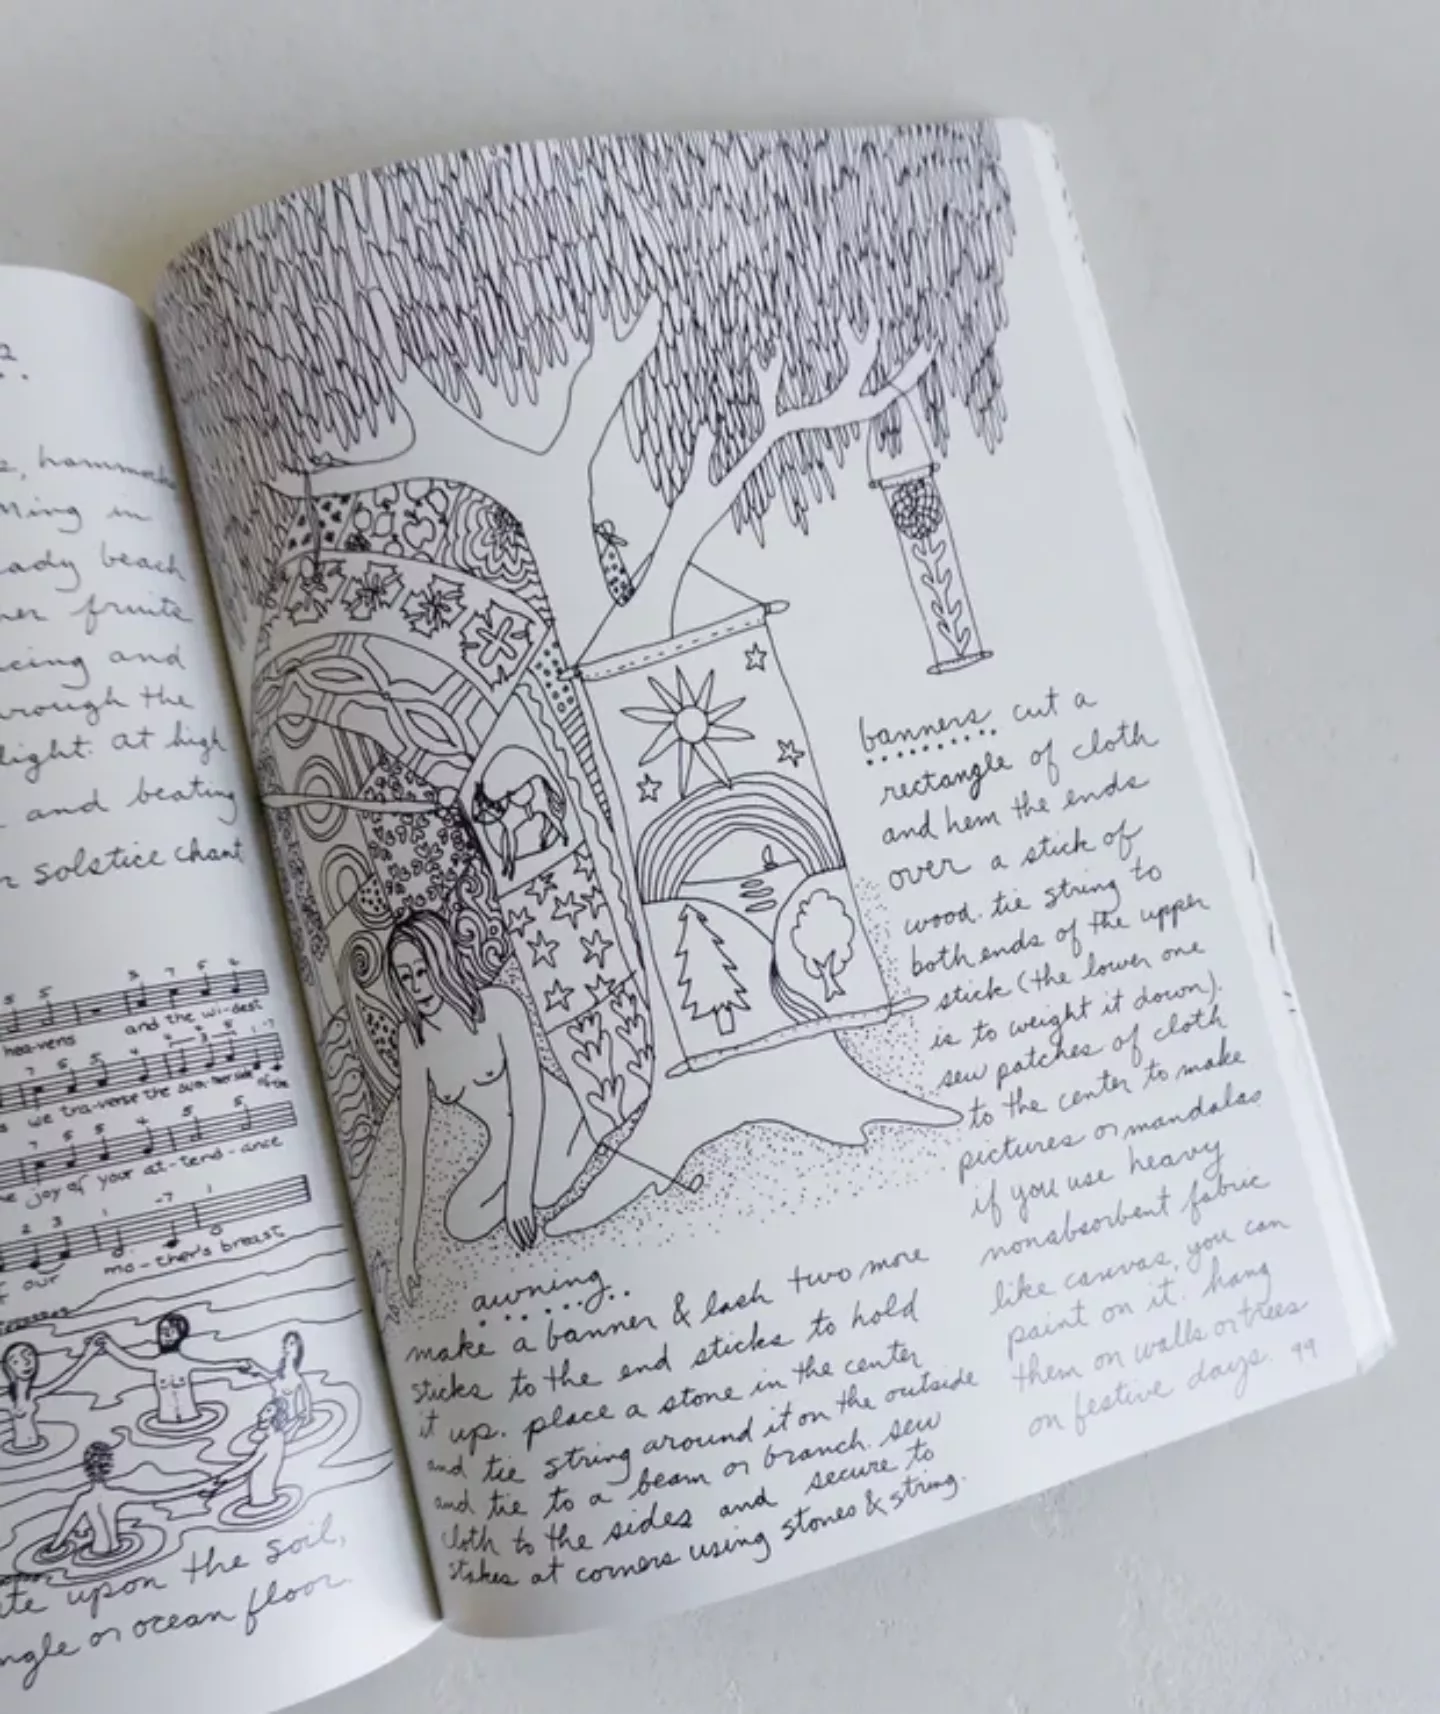 hammocks
in
beach
fruits
and
through the
light. at high
and beating
solstice chant
heavens and the wi-dest
we tra-verse the
joy of your at-tend-ance
our mo-ther's breast
upon the soil,
or ocean floor.
banners cut a
rectangle of cloth
and hem the ends
over a stick of
wood. tie string to
both ends of the upper
stick (the lower one
is to weight it down).
sew patches of cloth
to the center to make
pictures or mandalas
if you use heavy
nonabsorbent fabric
like canvas, you can
paint on it. hang
them on walls or trees
on festive days. 99
awning
make a banner & lash two more
sticks to the end sticks to hold
it up. place a stone in the center
and tie string around it on the outside
and tie to a beam or branch. sew
cloth to the sides and secure to
stakes at corners using stones & string.